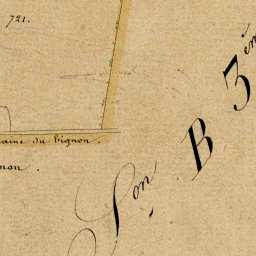 721.
aine du Vignon.
non.
Son B 3èm